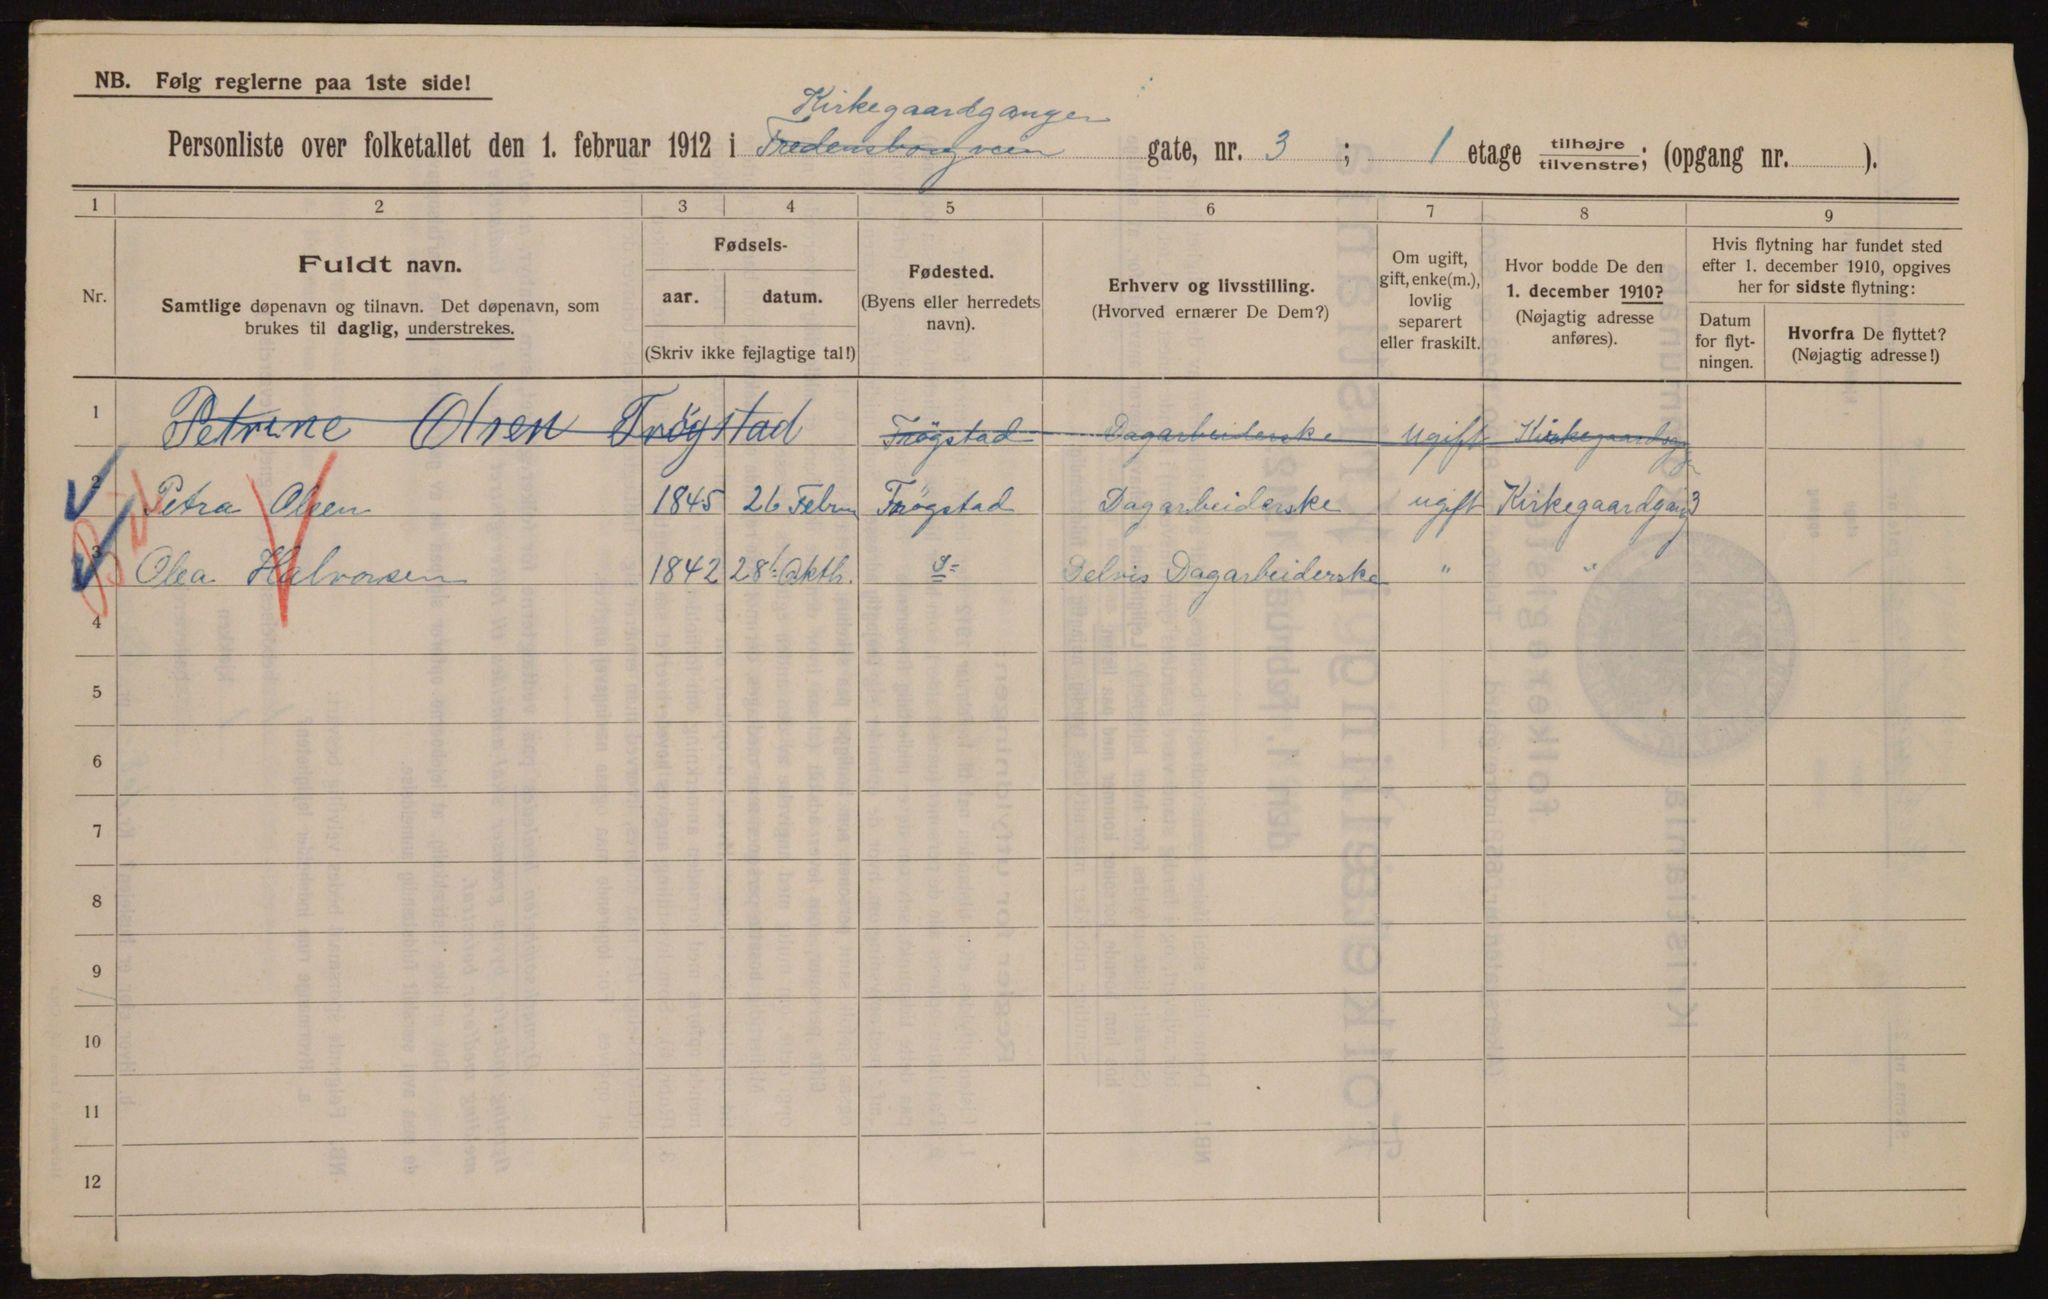 NB. Følg reglerne paa 1ste side!
Kirkegaardganger
Personliste over folketallet den 1. februar 1912 i Fredensborgveien gate, nr. 3 ; 1 etage tilhøjre tilvenstre; (opgang nr. ).
1 2 3 4 5 6 7 8 9
Nr.
Fuldt navn.
Samtlige døpenavn og tilnavn. Det døpenavn, som
brukes til daglig, understrekes.
Fødsels-
aar. datum.
(Skriv ikke fejlagtige tal!)
Fødested.
(Byens eller herredets
navn).
Erhverv og livsstilling.
(Hvorved ernærer De Dem?)
Om ugift,
gift, enke(m.),
lovlig
separert
eller fraskilt.
Hvor bodde De den
1. december 1910?
(Nøjagtig adresse
anføres).
Hvis flytning har fundet sted
efter 1. december 1910, opgives
her for sidste flytning:
Datum
for flyt-
ningen.
Hvorfra De flyttet?
(Nøjagtig adresse!)
1 Petrine Olsen Trøgstad Trögstad Dagarbeiderske ugift Kirkegaardsgang
2 Petra Olsen 1845 26 Febru Trögstad Dagarbeiderske ugift Kirkegaardgang 3
3 Olea Halvorsen 1842 28. Oktb. Delvis Dagarbeiderske " "
4
5
6
7
8
9
10
11
12